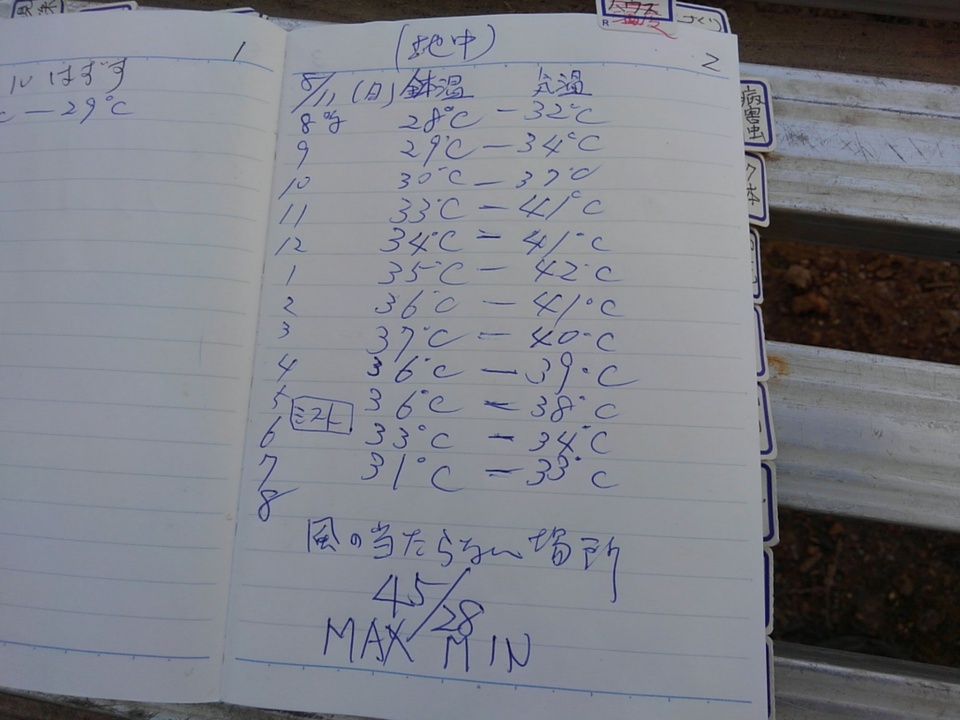 1
ルはずす
℃ー29℃
2
(地中)
8/11(日) 鉢温 気温
8時 28℃ー32℃
9 29℃ー34℃
10 30℃ー37℃
11 33℃ー41℃
12 34℃ー41℃
1 35℃ー42℃
2 36℃ー41℃
3 37℃ー40℃
4 36℃ー39℃
5 ミスト 36℃ー38℃
6 33℃ー34℃
7 31℃ー33℃
8
風の当たらない場所
45/28
MAX MIN
づくり
病害虫